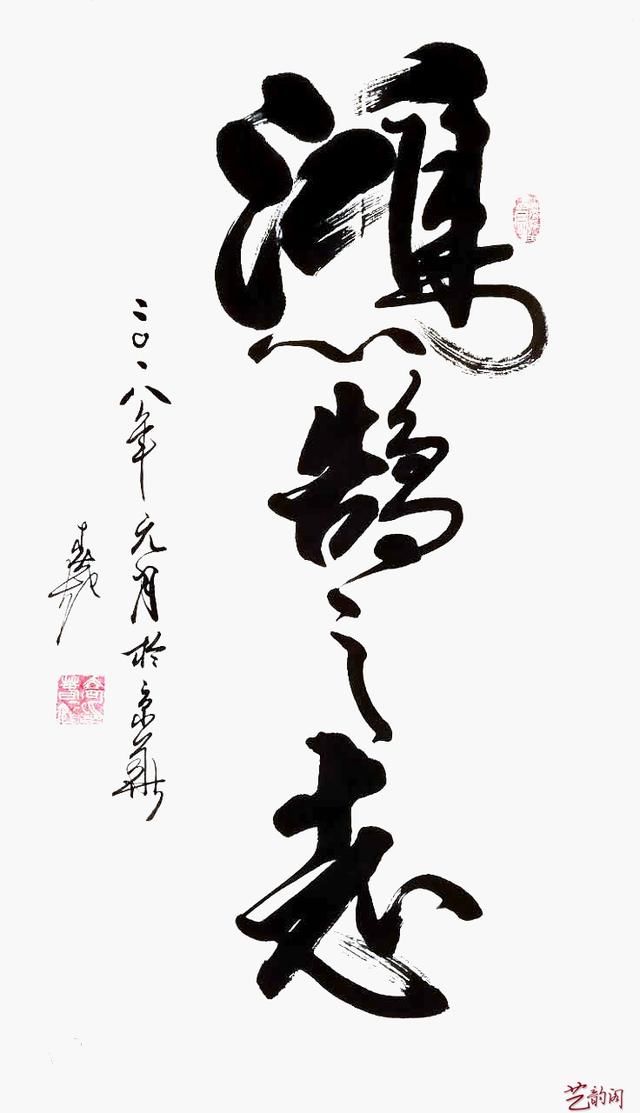 鴻鹄之志
二〇一八年元月於京華
艺韵阁